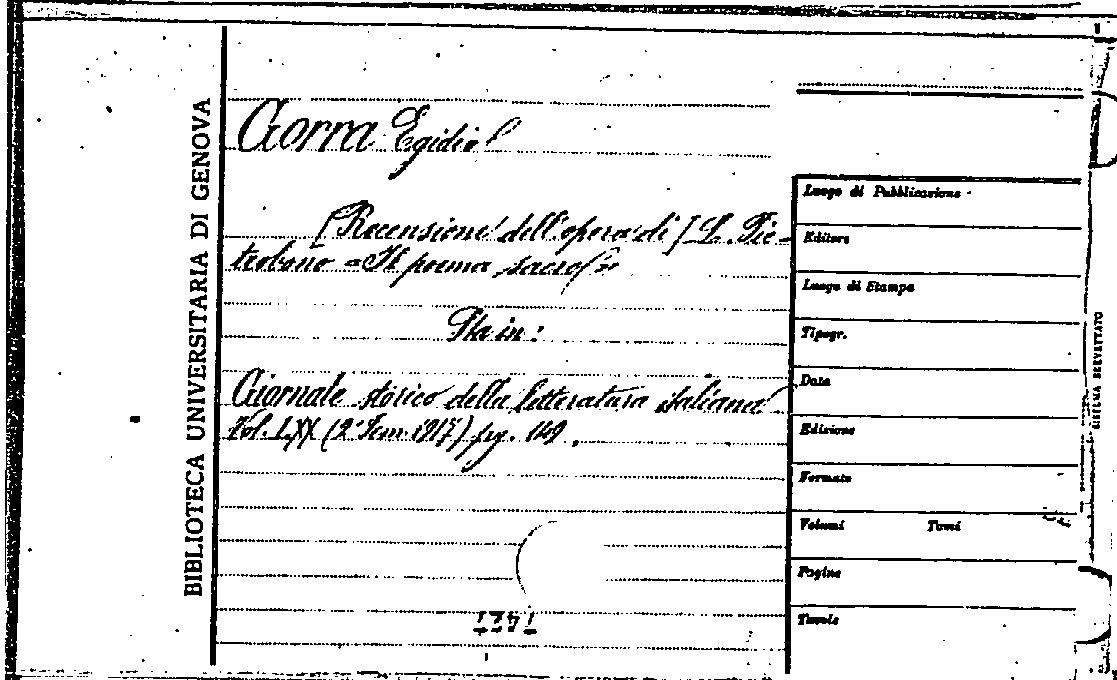 BIBLIOTECA UNIVERSITARIA DI GENOVA
Gorra Egidio
[Recensione dell'opera di] L. Pie-
trobono "Il poema sacro"
Sta in:
Giornale storico della letteratura italiana
Vol. LXX (2° Sem. 1917) pg. 149.
Luogo di Pubblicazione
Editore
Luogo di Stampa
Tipogr.
Data
Edizione
Formato
Volumi Tomi
Pagine
Tavole
SISTEMA BREVETTATO